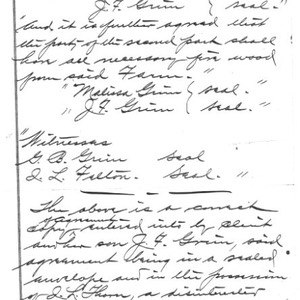 J. F. Grim { seal."
"And it is further agreed that
the party of the second part shall
have all necessary fire wood
from said Farm."
"Malissa Grim { seal."
" J. F. Grim { seal."
"Witnesses
G. B. Grim seal
I. L. Felton. Seal."
The above is a correct
copy agreement entered into by client
and her son J. F. Grim, said
agreement being in a sealed
envelope and in the possession
of I. L. Thorn, a disinterested